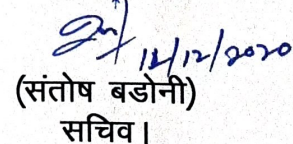 12/12/2020
(संतोष बडोनी)
सचिव।